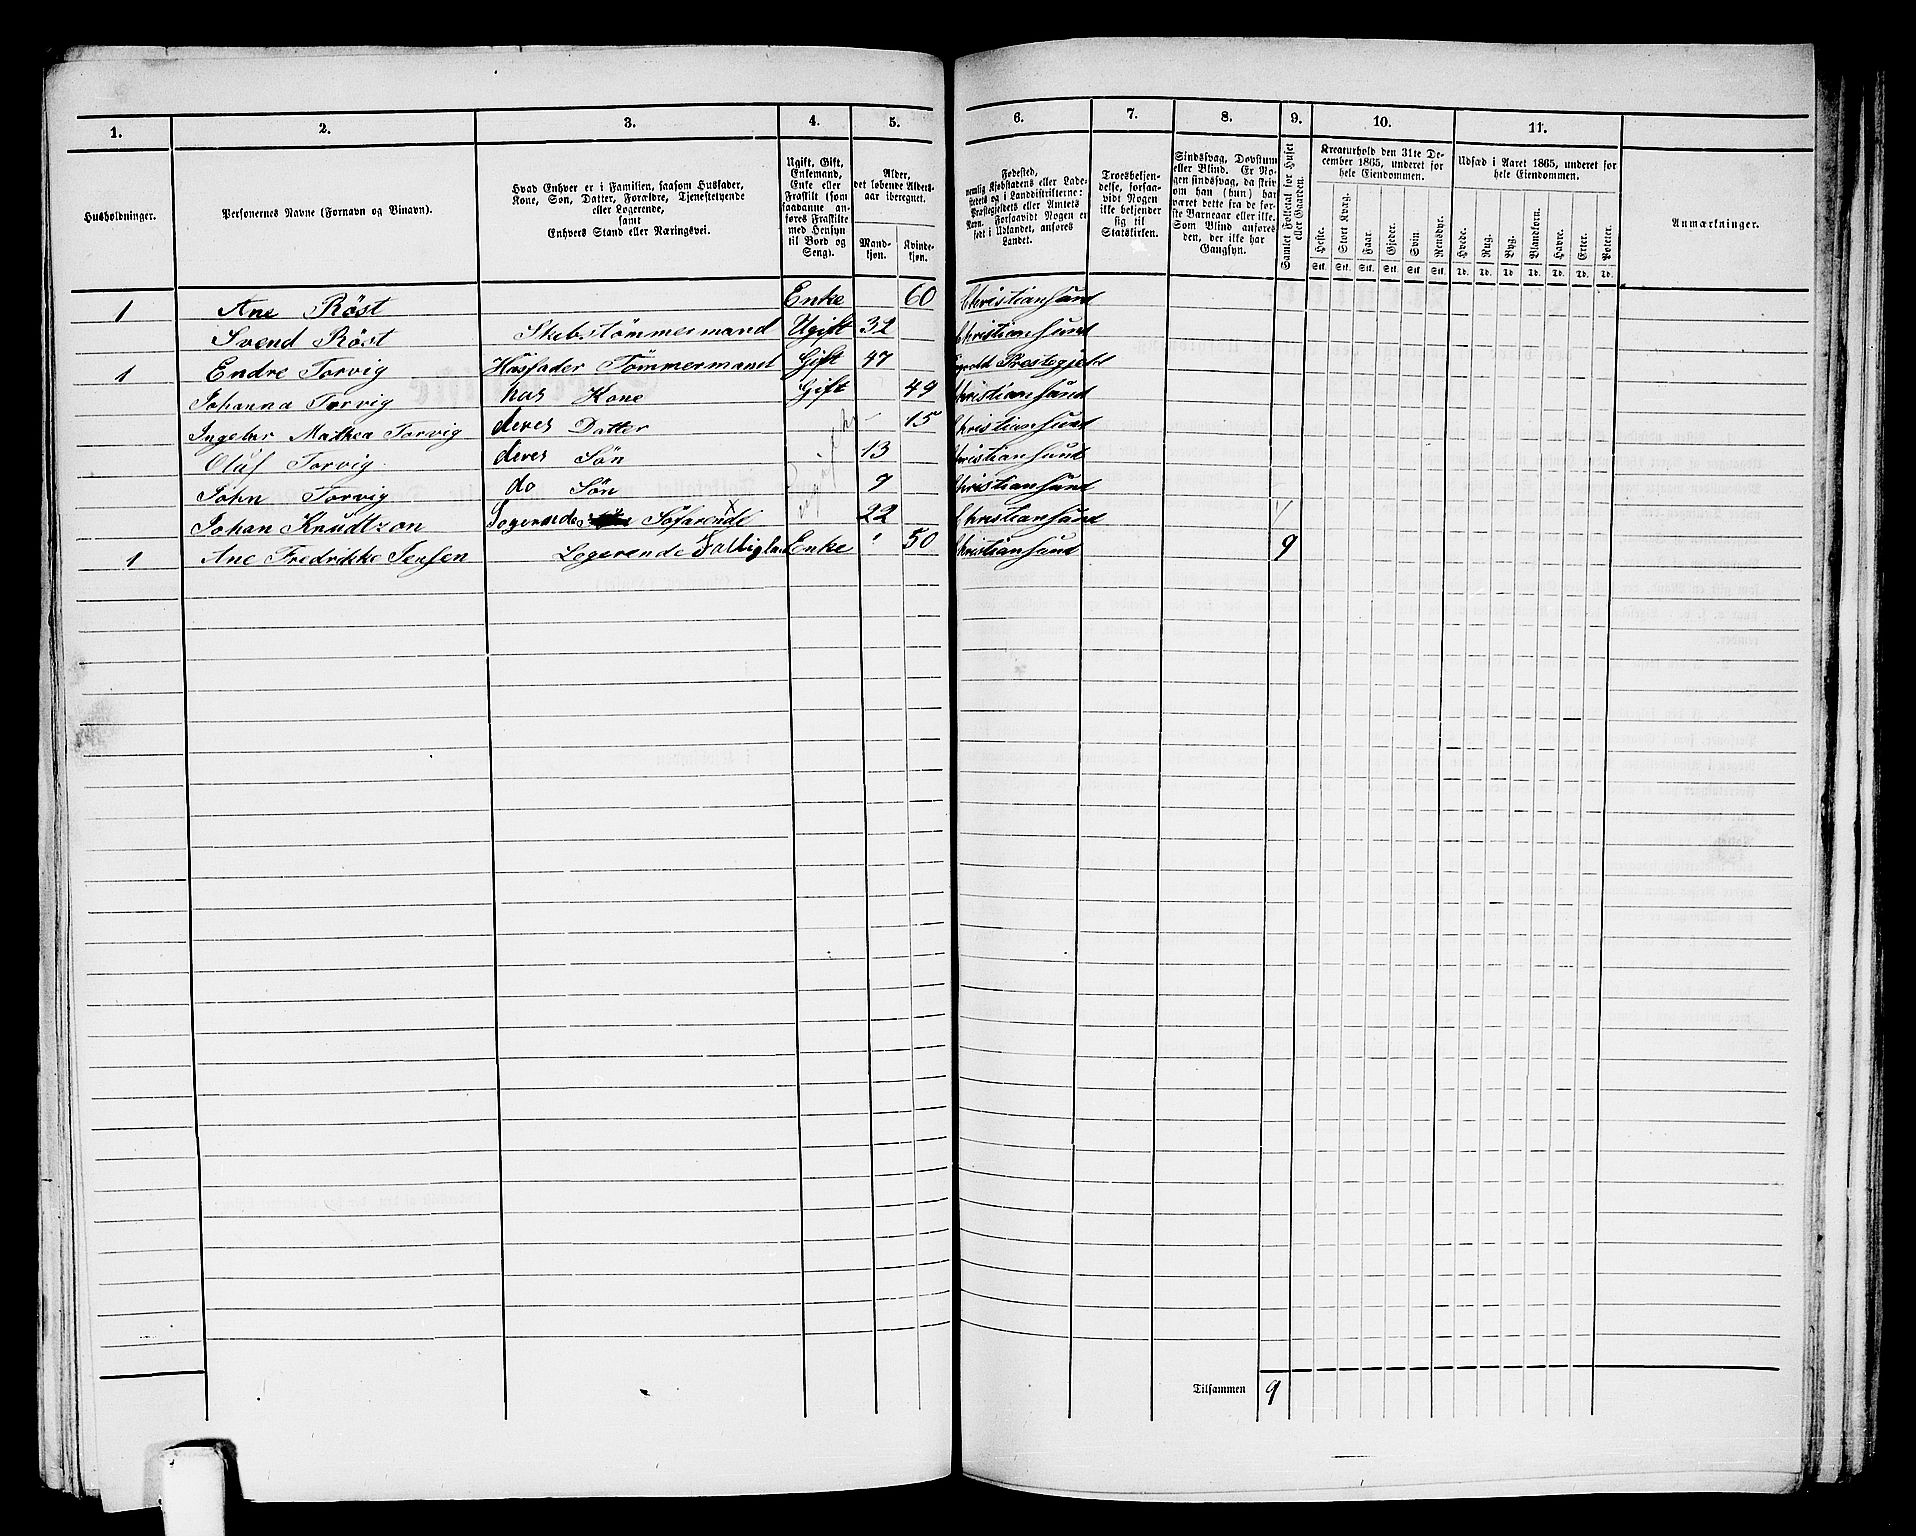 1. 2. 3. 4. 5. 6. 7. 8. 9. 10. 11.
Husholdninger.
Personernes Navne (Fornavn og Binavn).
Hvad Enhver er i Familien, saasom Husfader,
Kone, Søn, Datter, Forældre, Tjenestetyende
eller Logerende,
samt
Enhvers Stand eller Næringsvei.
Ugift, Gift,
Enkemand,
Enke eller
Fraskilt (som
saadanne an-
føres Fraskilte
med Hensyn
til Bord og
Seng).
Alder,
det løbende Alders-
aar iberegnet.
Mand-
kjøn.
Kvinde-
kjøn.
Fødested,
nemlig Kjøbstadens eller Lade-
stedets og i Landdistrikterne:
Præstegjeldets eller Amtets
Navn. Forsaavidt Nogen er
født i Udlandet, anføres
Landet.
Troesbekjen-
delse, forsaa-
vidt Nogen
ikke bekjender
sig til
Statskirken.
Sindssvag, Døvstum
eller Blind. Er No-
gen sindssvag, da skriv
om han (hun) har
været dette fra de før-
ste Barneaar eller ikke.
Som Blind anføres
den, der ikke har
Gangsyn.
Samlet Folketal for Huset
eller Gaarden.
Kreaturhold den 31te De-
cember 1865, underet for
hele Eiendommen.
Heste. Stort Kvæg. Faar. Gjeder. Svin. Rensdyr.
Stk. Stk. Stk. Stk. Stk. Stk.
Udsæd i Aaret 1865, underet for
hele Eiendommen.
Hvede. Rug. Byg. Blandkorn. Havre. Erter. Poteter.
Td. Td. Td. Td. Td. Td. Td.
Anmærkninger.
1 Ane Röst Enke 60 Christiansund
Svend Röst Skibstömmermand Ugift 32 Christiansund
1 Endre Torvig Husfader Tömmermand Gift 47 Prestegjeld
Johanna Torvig has Kone Gift 49 Christiansund
Ingebor Mathea Torvig deres Datter 15 Christiansund
Oluf Torvig deres Sön 13 Christiansund
John Torvig do Sön 9 Christiansund
Johan Knudtzon Logerende Söfarende 22 Christiansund
1 Ane Fredrikke Jensen Logerende Enke 50 Christiansund 9
Tilsammen 9